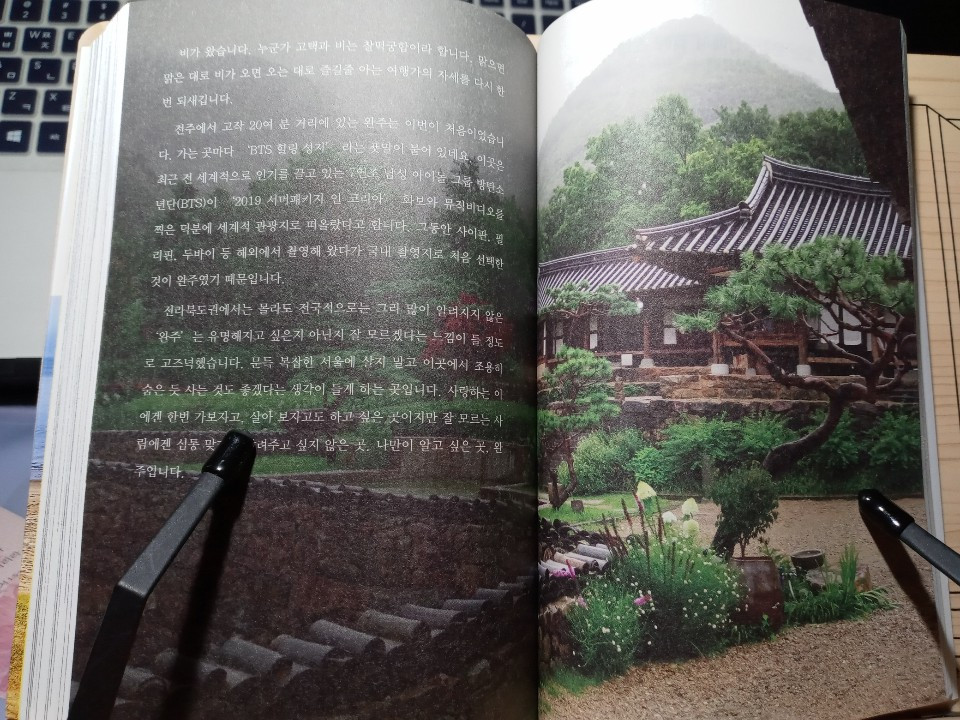 비가 왔습니다. 누군가 고택과 비는 찰떡궁합이라 합니다. 맑으면
맑은 대로 비가 오면 오는 대로 즐길줄 아는 여행가의 자세를 다시 한
번 되새깁니다.
전주에서 고작 20여 분 거리에 있는 완주는 이번이 처음이었습니
다. 가는 곳마다 ‘BTS 힐링 성지’ 라는 푯말이 붙어 있네요. 이곳은
최근 전 세계적으로 인기를 끌고 있는 7인조 남성 아이돌 그룹 방탄소
년단(BTS)이 ‘2019 서머패키지 인 코리아’ 화보와 뮤직비디오를
찍은 덕분에 세계적 관광지로 떠올랐다고 합니다. 그동안 사이판, 필
리핀, 두바이 등 해외에서 촬영해 왔다가 국내 촬영지로 처음 선택한
것이 완주였기 때문입니다.
전라북도권에서는 몰라도 전국적으로는 그리 많이 알려지지 않은
‘완주’ 는 유명해지고 싶은지 아닌지 잘 모르겠다는 느낌이 들 정도
로 고즈넉했습니다. 문득 복잡한 서울에 살지 말고 이곳에서 조용히
숨은 듯 사는 것도 좋겠다는 생각이 들게 하는 곳입니다. 사랑하는 이
에겐 한번 가보자고, 살아 보자고도 하고 싶은 곳이지만 잘 모르는 사
람에겐 심통 맞 려주고 싶지 않은 곳. 나만이 알고 싶은 곳, 완
주입니다.